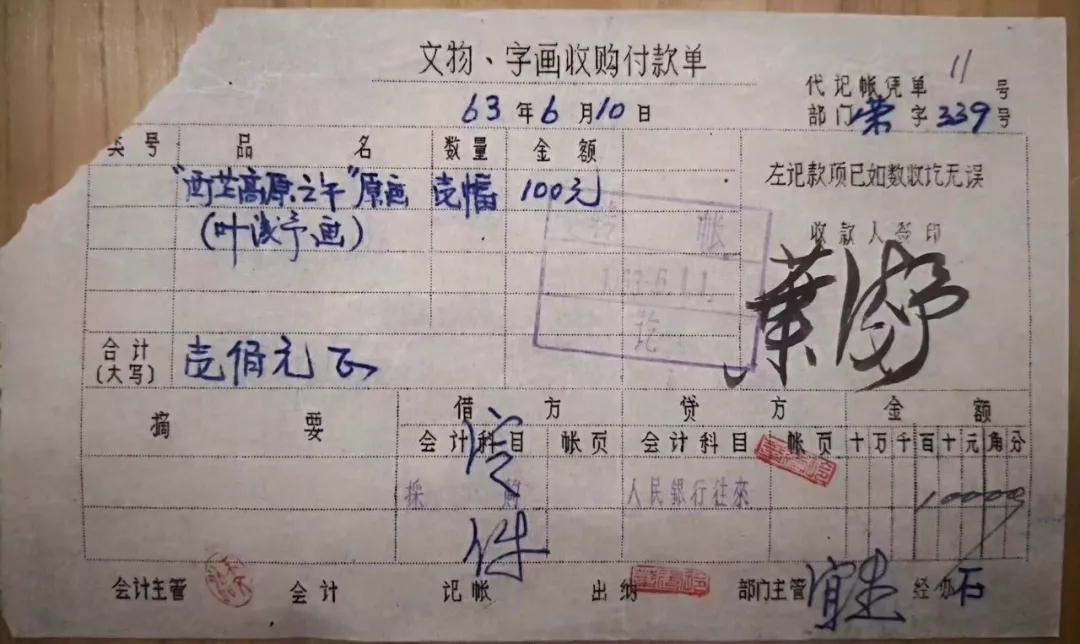 文物、字画收购付款单
代记帐凭单 11 号
63年6月10日
部门荣字339号
类号 品名 数量 金额
"西芷高原之午"原画 壱幅 100元
左记款项已如数收讫无误
(叶浅予画)
收款人签印
转帐
1963.6.11.
讫
葉浅予
合计
(大写)
壱佰元正
摘要 借方 贷方 金额
会计科目 帐页 会计科目 帐页 十万千百十元角分
採购 人民銀行往來 10000
件
会计主管 会计 记帐 出纳 部门主管 宜生 经办 石